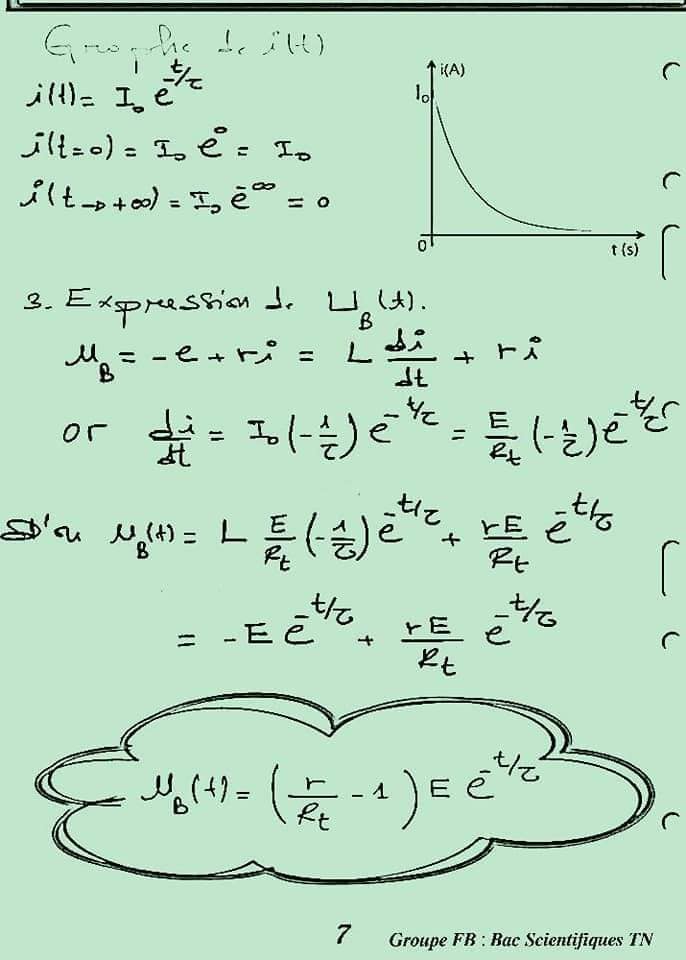 Graphe de i(t)
i(t) = I₀ e^(-t/τ)
i(t=0) = I₀ e⁰ = I₀
i(t→+∞) = I₀ e^(-∞) = 0
i(A)
I₀
0
t (s)
3. Expression de U_B(t).
u_B = -e + ri = L di/dt + ri
or di/dt = I₀(-1/τ) e^(-t/τ) = E/R_t (-1/τ) e^(-t/τ)
D'où u_B(t) = L E/R_t (-1/τ) e^(-t/τ) + rE/R_t e^(-t/τ)
= -E e^(-t/τ) + rE/R_t e^(-t/τ)
u_B(t) = (r/R_t - 1) E e^(-t/τ)
7 Groupe FB : Bac Scientifiques TN